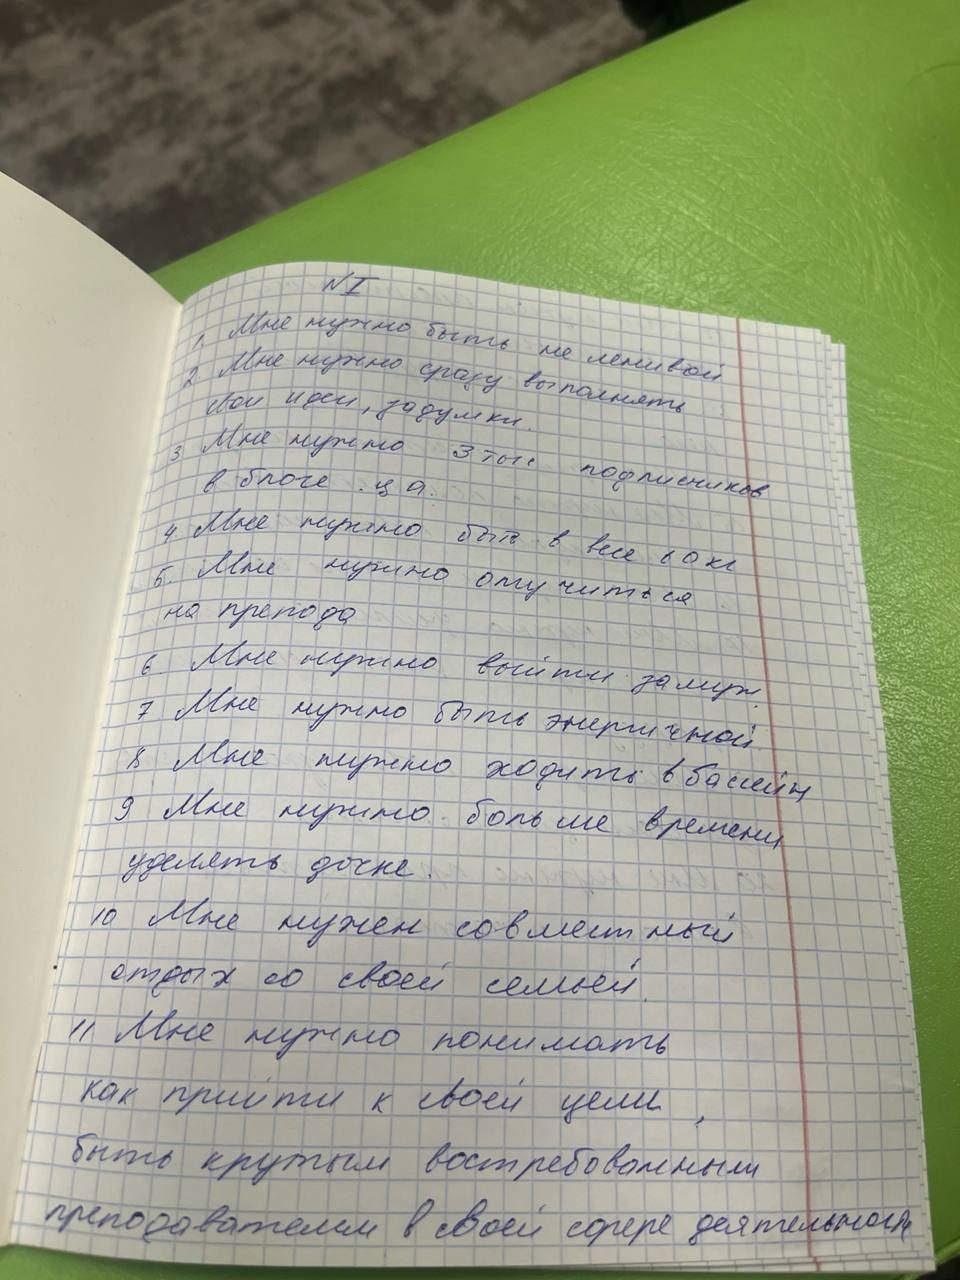 № I
1. Мне нужно быть не ленивой
2 Мне нужно сразу выполнять
свои идеи, задумки.
3 Мне нужно 3 тыс подписчиков
в блоге . ц а.
4. Мне нужно быть в весе 60 кг
5. Мне нужно отучиться
на препода
6 Мне нужно выйти замуж.
7 Мне нужно быть энергичной
8 Мне нужно ходить в бассейн
9 Мне нужно больше времени
уделять дочке.
10 Мне нужен совместный
отдых со своей семьёй.
11 Мне нужно понимать
как прийти к своей цели,
быть крутым востребованным
преподавателем в своей сфере деятельности